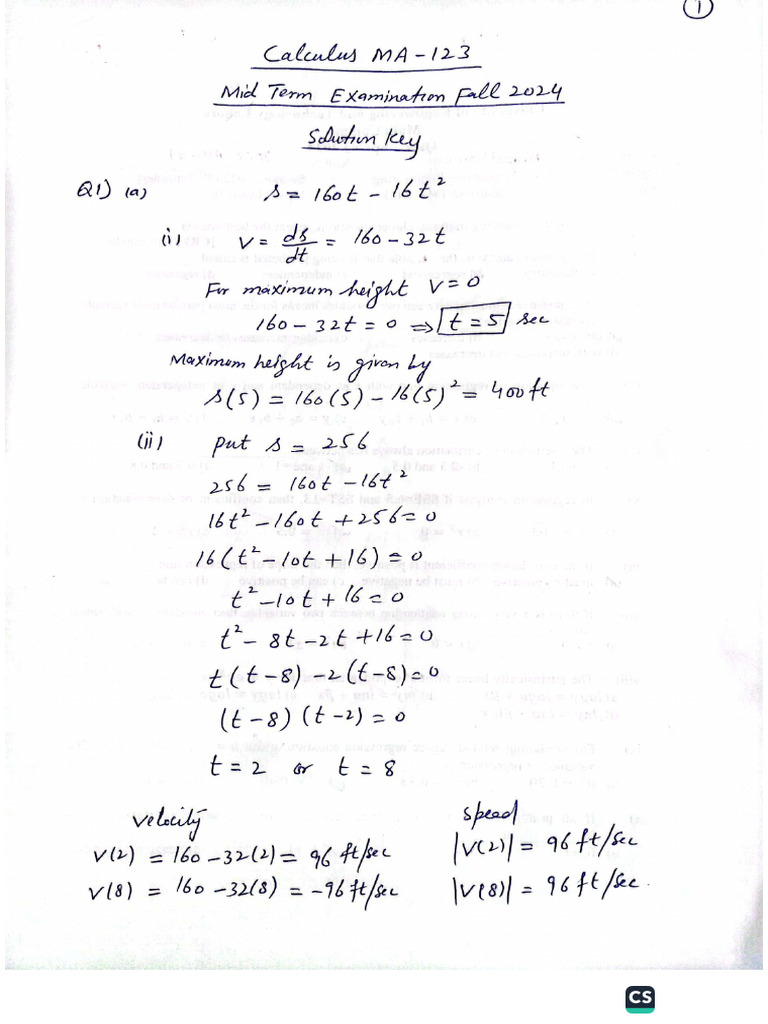 1
Calculus MA-123
Mid Term Examination Fall 2024
Solution Key
Q1) (a) s = 160t - 16t²
(i) v = ds/dt = 160 - 32t
For maximum height v = 0
160 - 32t = 0 ⇒ t = 5 sec
Maximum height is given by
s(5) = 160(5) - 16(5)² = 400 ft
(ii) put s = 256
256 = 160t - 16t²
16t² - 160t + 256 = 0
16(t² - 10t + 16) = 0
t² - 10t + 16 = 0
t² - 8t - 2t + 16 = 0
t(t-8) - 2(t-8) = 0
(t-8)(t-2) = 0
t = 2 or t = 8
velocity
v(2) = 160 - 32(2) = 96 ft/sec
v(8) = 160 - 32(8) = -96 ft/sec
speed
|v(2)| = 96 ft/sec
|v(8)| = 96 ft/sec.
CS